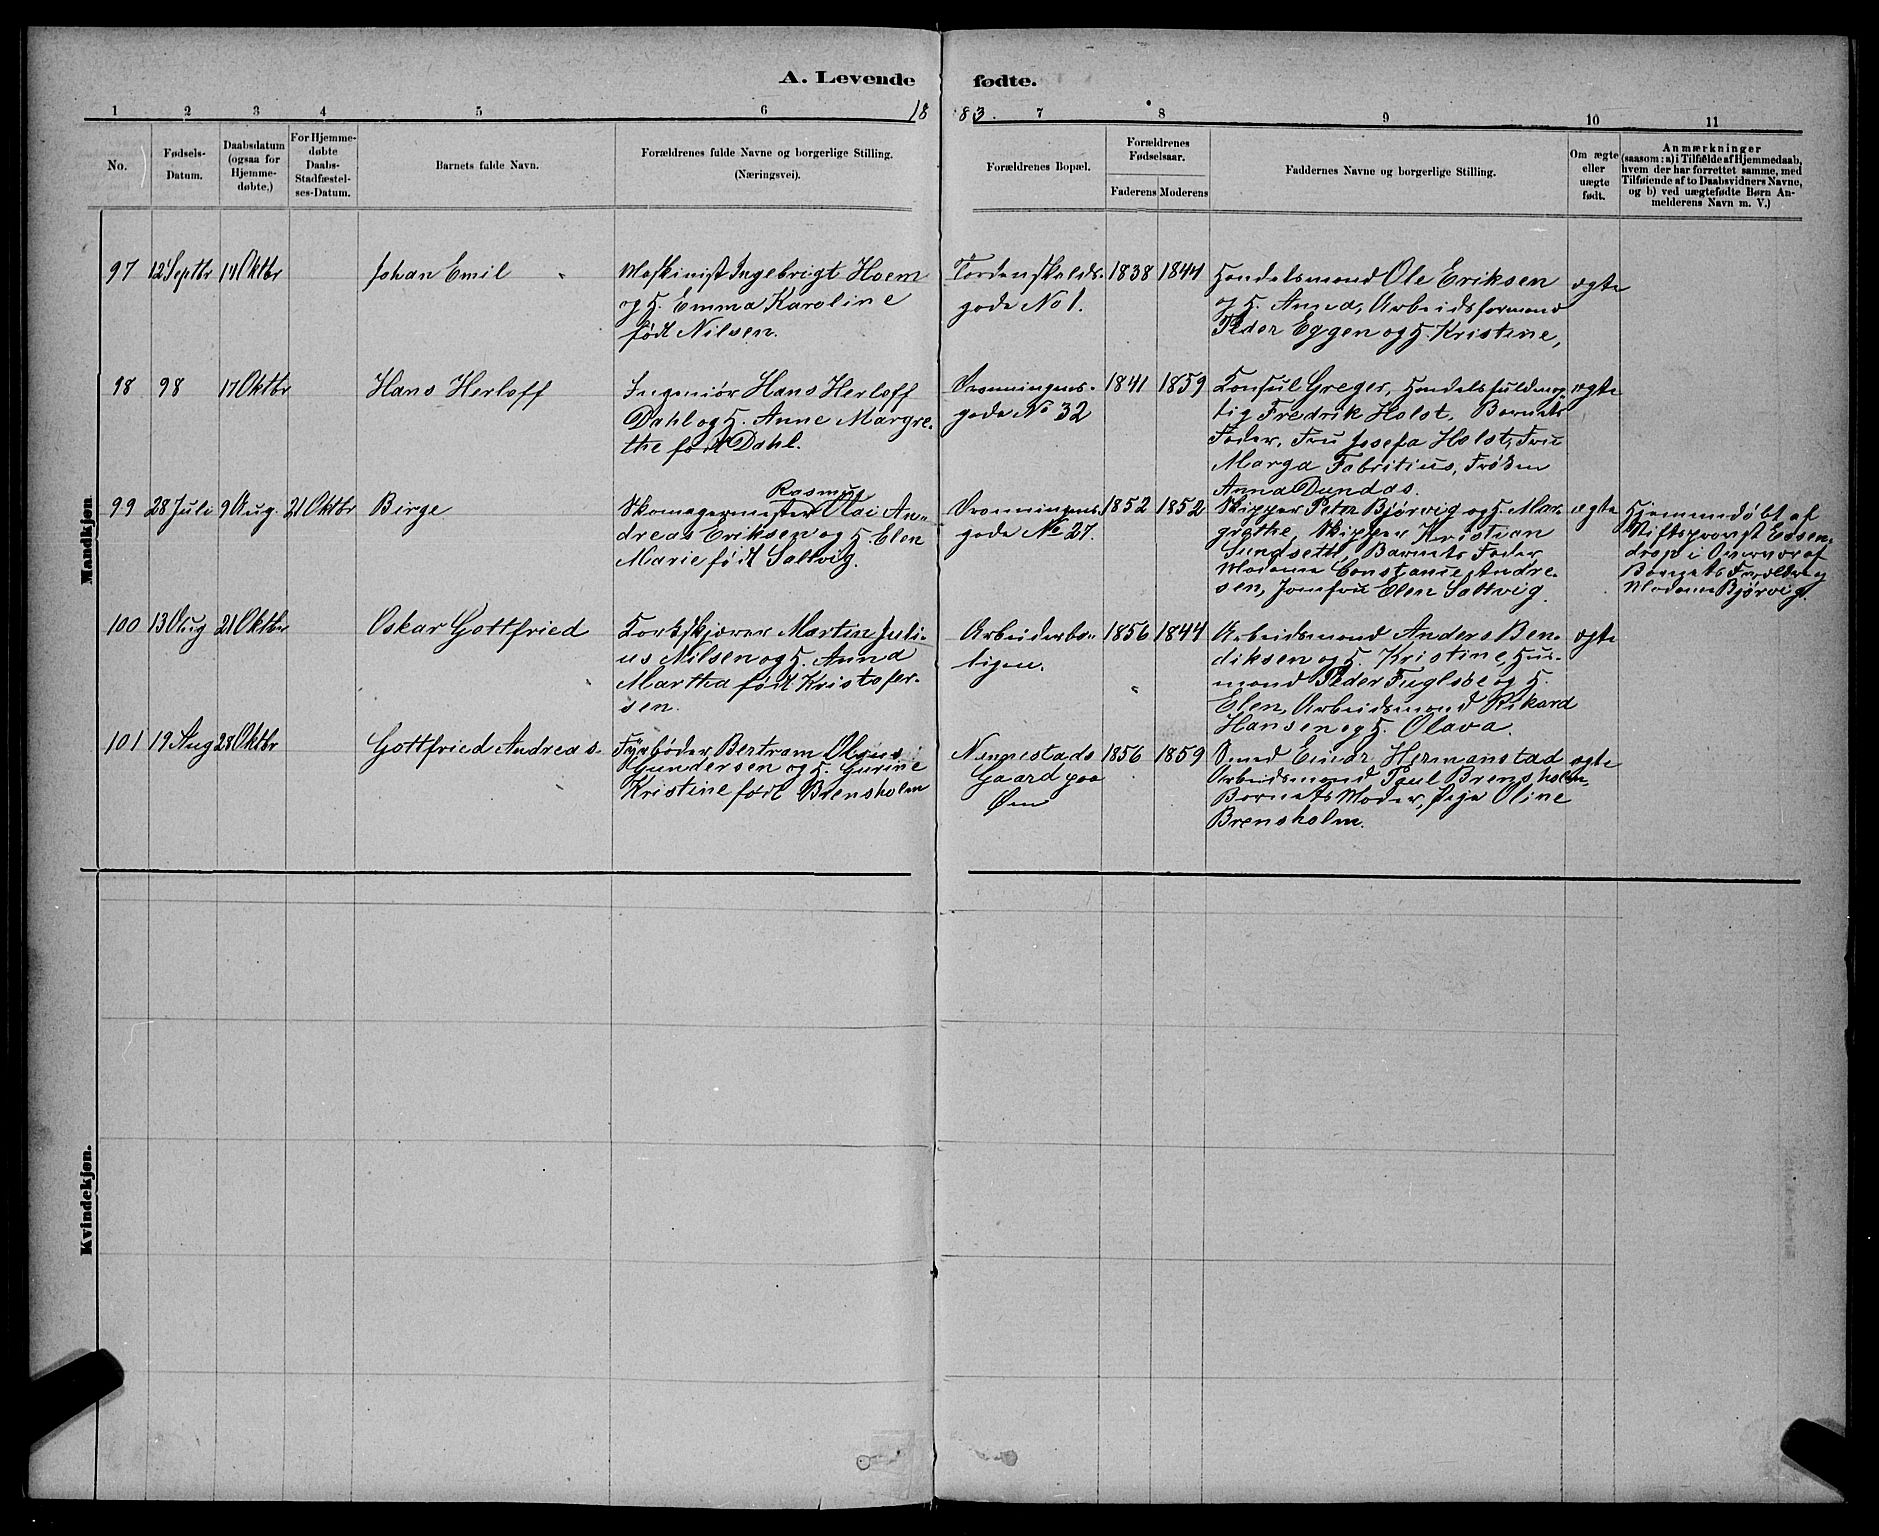 A. Levende fødte.
1 2 3 4 5 6 1883. 7 8 9 10 11
No.
Fødsels-
Datum.
Daabsdatum
(ogsaa for
Hjemme-
døbte.)
For Hjemme-
døbte
Daabs-
Stadfæstel-
ses-Datum.
Barnets fulde Navn.
Forældrenes fulde Navne og borgerlige Stilling.
(Næringsvei).
Forældrenes Bopæl.
Forældrenes
Fødselsaar.
Faderens Moderens
Faddernes Navne og borgerlige Stilling.
Om ægte
eller
uægte
født.
Anmærkninger
(saasom: a) i Tilfælde af Hjemmedaab,
hvem der har forrettet samme, med
Tilføiende af to Daabsvidners Navne,
og b) ved uægtefødte Børn An-
melderens Navn m. V.)
Mandkjøn
97 12 Septbr 14 Oktbr
Johan Emil
Maskinist Ingebrigt Hoem
og H. Emma Karoline
født Nilsen.
Tordenskolds-
gade No 1.
1838 1844
Handelsmand Ole Eriksen
og H. Anna, Arbeidsformand
Peder Eggen og H. Kristine,
ægte
98 98 17 Oktbr
Hans Herloff
Ingeniør Hans Herloff
Dahl og H. Anne Margre-
the født Dahl.
Dronningens-
gade No 32
1841 1859
Konsul Greger, Handelsfuldmæg-
tig Fredrik Holst, Barnets
Fader, Fru Josefa Holst, Fru
Marga Fabritius, Frøken
Anna Dundas.
ægte
99 28 Juli 9 Aug. 21 Oktbr
Birge
Rasmus
Skomagermester Olai An-
dreas Eriksen og H. Elen
Marie født Saltvig.
Dronningens
gade No 27.
1852 1852
Skipper Peter Bjørvig og H. Mar-
grethe, Skipper Kristian
Sundseth, Barnets Fader
Madame Constance Andre-
sen, Jomfru Elen Saltvig.
ægte
Hjemmedøbt af
Stiftsprovst Essen-
drop i Overvær af
Barnets Forældre og
Madame Bjørvig.
100 13 Aug 21 Oktbr
Oskar Gottfried
Korkskjærer Martin Juli-
us Nilsen og H. Anna
Martha født Kristofer-
sen.
Arbeiderbo-
ligen.
1856 1844
Arbeidsmand Anders Ben-
diksen og H. Kristine, Hus-
mand Peder Fuglsbe og H.
Elen, Arbeidsmand Rikard
Hansen og H. Olava.
ægte
101 19 Aug 28 Oktbr
Gottfried Andreas.
Fyrbøder Bertram Olaus
Gundersen og H. Gurine
Kristine født Brensholm
Nennestads
Gaard paa
Øen
1856 1859
Smed Einar Hermanstad
Arbeidsmand Paul Brensholm,
Barnets Moder, Pige Oline
Brensholm.
ægte
Kvindekjøn.